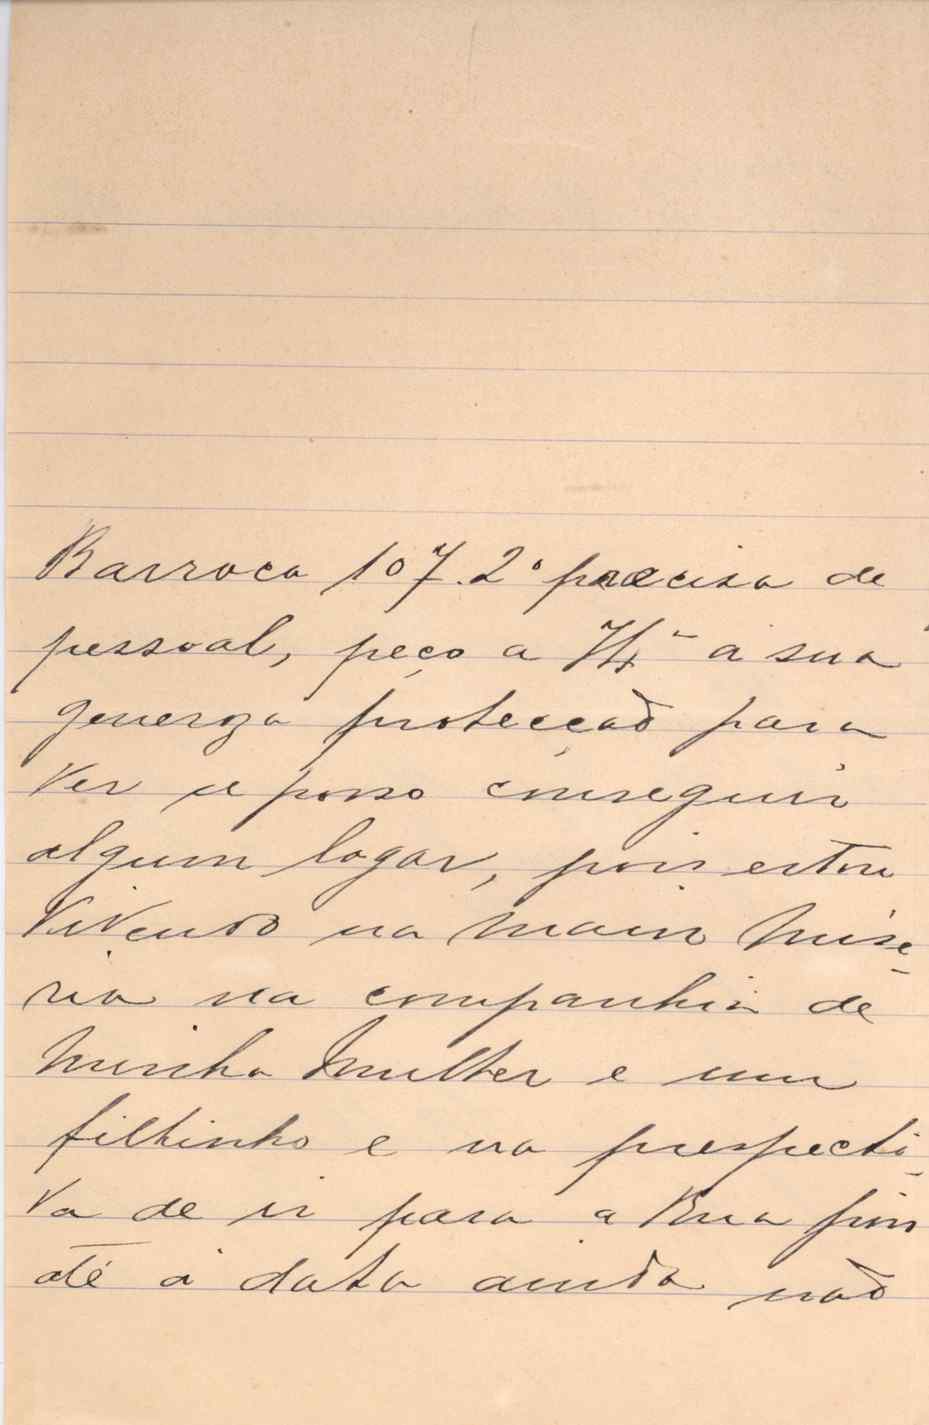 Barroca 107. 2º precisa de
pessoal, peço a V. Ex.ª a sua
generoza protecçaõ para
ver se posso conseguir
algum logar, pois estou
vivendo na maior mise-
ria na companhia de
minha mulher e um
filhinho e na prespecti-
va de ir para a Rua pois
até á data ainda naõ